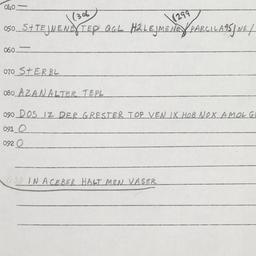 040 —
1306 1299
050 S+TEJNENE TEP OGL HALEJMENE PARCILA
060 —
070 STERBL
080 AZANALTER TEPL
090 DOS IZ DER GRESTER TOP VEN IX HOB NOX AMOL
091 O
092 O
IN ACEBER HALT MEN VASER